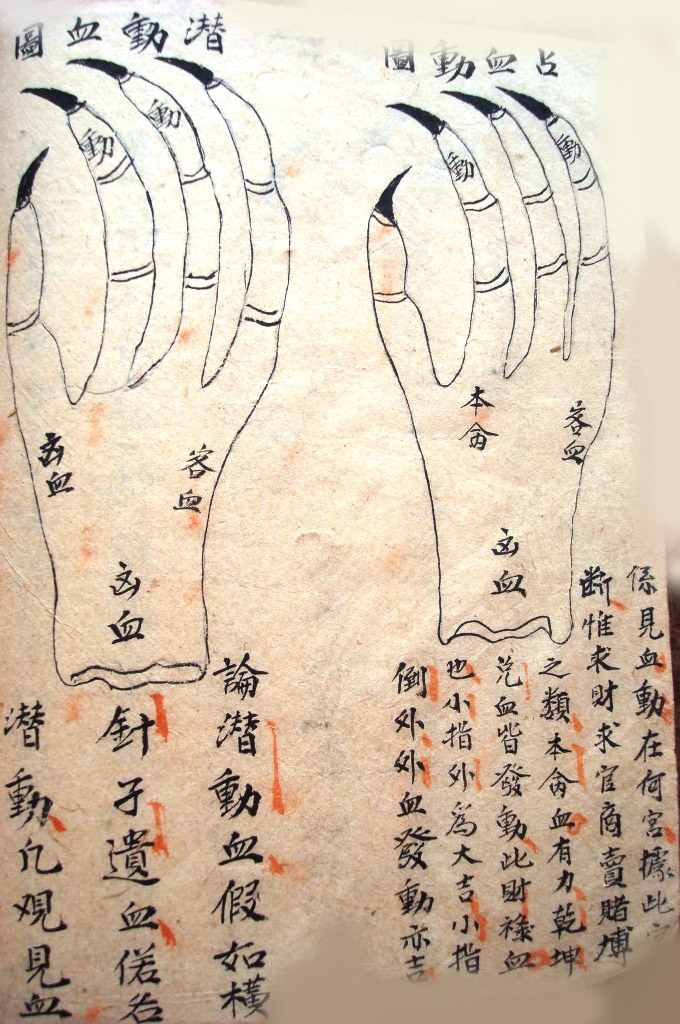 占血動圖
動
動
本侖
客血
凶血
係見血動在何宮據此
斷惟求財求官商賣賭博
之類本侖血有力乾坤
血皆發動此財祿血
也小指外為大吉小指
倒外外血發動亦吉
潛動血圖
動
動
凶血
客血
凶血
論潛動血假如橫
針子遺血偌名
潛動凡观見血